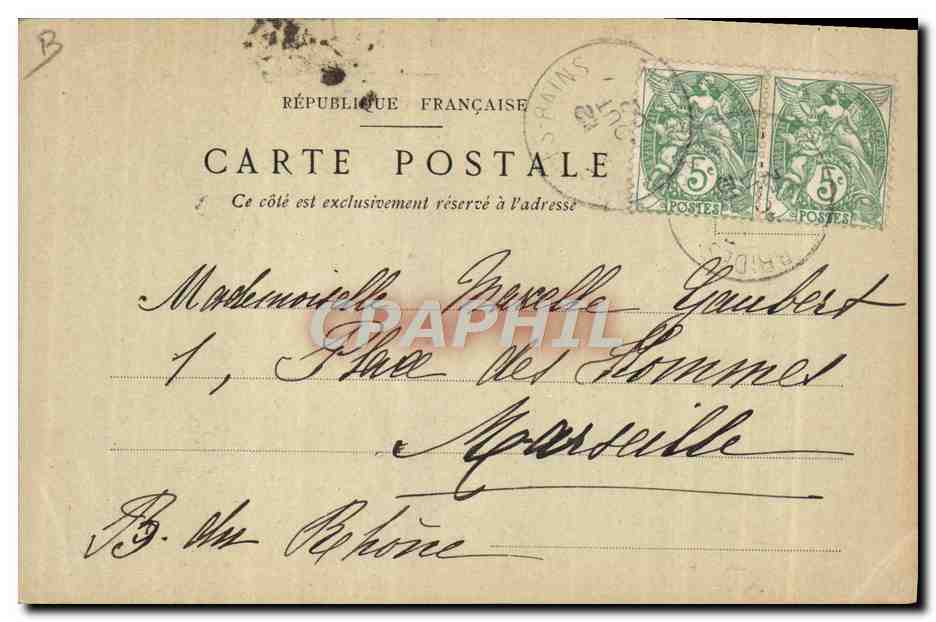 B
RÉPUBLIQUE FRANÇAISE
CARTE POSTALE
Ce côté est exclusivement réservé à l'adresse
5c
POSTES
5c
POSTES
Mademoiselle Marcelle Gaubert
CPAPHIL
1, Place des Hommes
Marseille
B. du Rhône